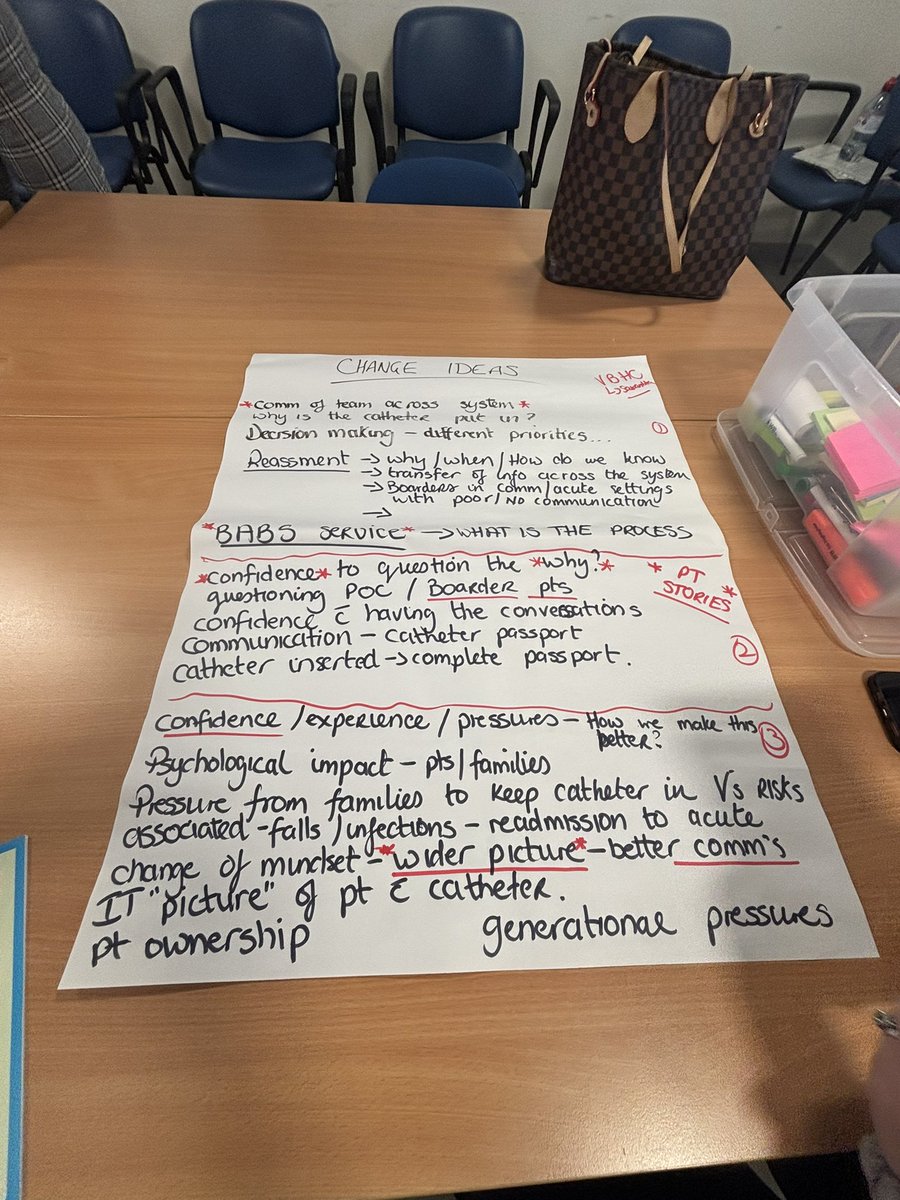 CHANGE IDEAS
VBHC
*Comm of team across system*
why is the catheter put in?
Decision making - different priorities...
①
Reassment -> why/when/How do we know
-> transfer of info across the system
-> Boarders in comm/acute settings
with poor/NO communication
->
*BABS SERVICE* -> WHAT IS THE PROCESS
*confidence* to question the *why?*
questioning POC / Boarder pts
confidence c̄ having the conversations
communication - catheter passport
catheter inserted -> complete passport.
* PT
STORIES *
②
confidence/experience/pressures - How we make this
better?
③
Psychological impact - pts/families
Pressure from families to keep catheter in Vs RISKS
associated - falls/infections - readmission to acute
change of mindset - *wider picture* - better comm's
IT "picture" of pt c̄ catheter.
pt ownership
generational pressures